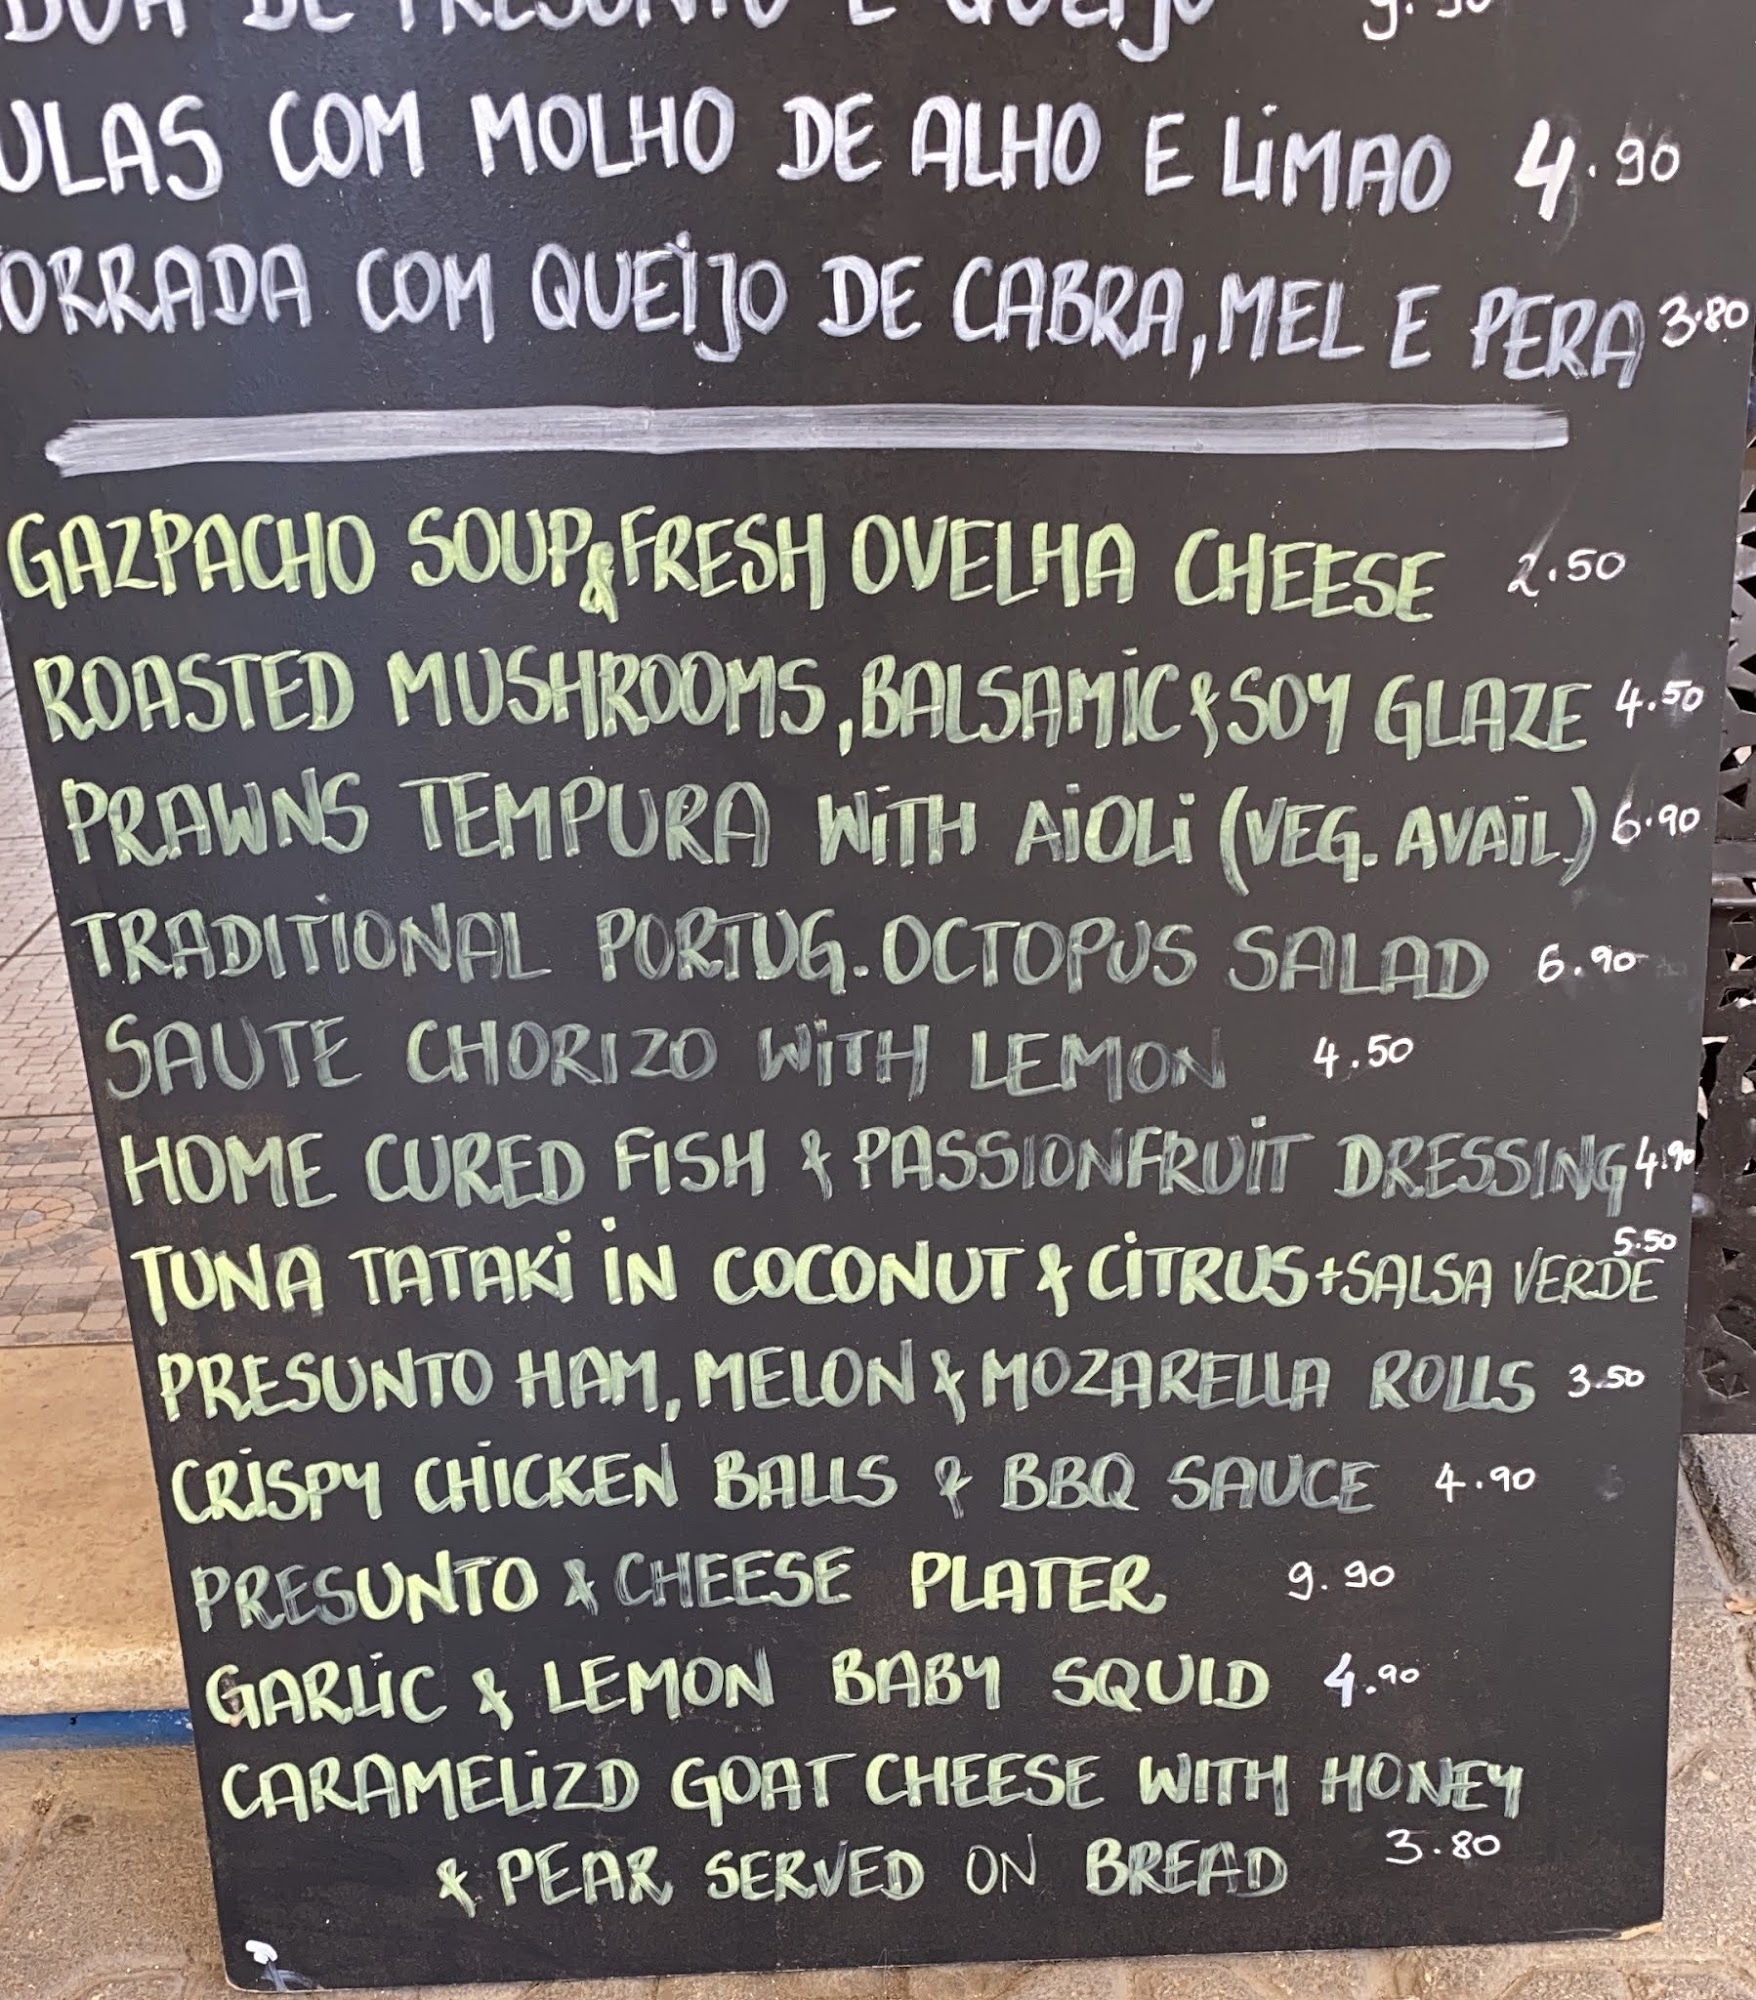 DE PRESUNTO E QUEIJO 9.90
COM MOLHO DE ALHO E LIMAO 4.90
COM QUEIJO DE CABRA, MEL E PERA 3.80
GAZPACHO SOUP & FRESH OVELHA CHEESE 2.50
ROASTED MUSHROOMS, BALSAMIC & SOY GLAZE 4.50
PRAWNS TEMPURA WITH AIOLI (VEG. AVAIL.) 6.90
TRADITIONAL PORTUG. OCTOPUS SALAD 6.90
SAUTE CHORIZO WITH LEMON 4.50
HOME CURED FISH & PASSIONFRUIT DRESSING 4.90
TUNA TATAKI IN COCONUT & CITRUS + SALSA VERDE 5.50
PRESUNTO HAM, MELON & MOZARELLA ROLLS 3.50
CRISPY CHICKEN BALLS & BBQ SAUCE 4.90
PRESUNTO & CHEESE PLATER 9.90
GARLIC & LEMON BABY SQUID 4.90
CARAMELIZD GOAT CHEESE WITH HONEY
& PEAR SERVED ON BREAD 3.80